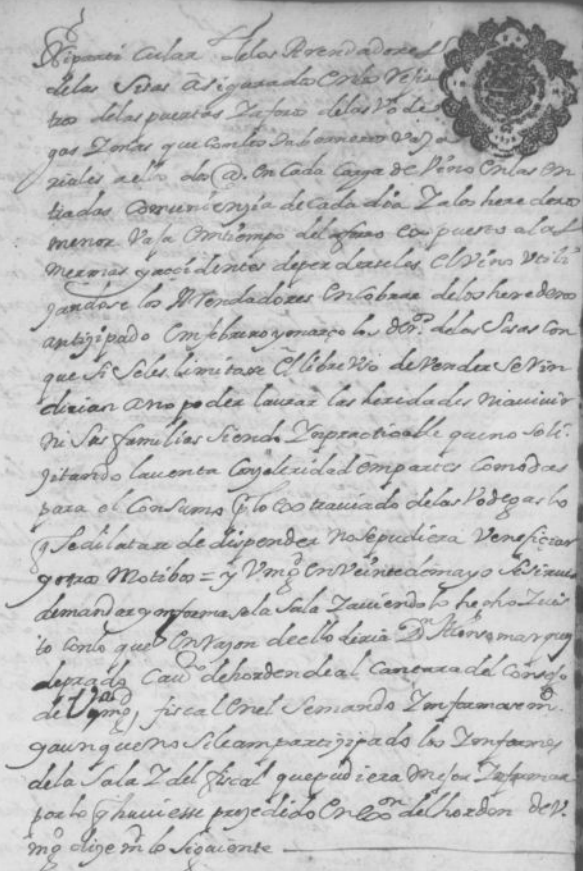 Ni particular de los Arrendadores
de las sisas Asigurado en los Regis
tros de las puertas Y aforo de las Vode
gas
riales a ello dos @. en Cada Carga de Vino en las en
tradas Comunienzia de Cada dia Y a los herederos
menor Vaja en tiempo del aforo expuesto a las
mermas y acidentes de perderseles el Vino Utili
zandose los ARendadores en Cobrar de los herederos
antizipado en febrero y março los der.os de las Sisas Con
que si se les limitase el libre Uso de Vender se Vin
dirian A no poder laurar las heredades ni auiuir
ni Sus familias Siendo Ynpracticable que no soli
zitando la uenta Con zeleridad en partes Comodas
para el Consumo p.r lo extrauiado de las Vodegas lo
q se dilatara de dispender no se pudiera Veneficiar
y otros Motibos = y V mg.d en Veinte de mayo se siruio
demandar ynformase la Sala Y auiendolo hecho Y uis
to con lo que en Razon de ello diria D.n Alonso marquez
de prado Cau.o de horden de alcantara del Consejo
de V mg.d fiscal en el se mando Ynformasemos
y aunque no se le an partizipado los Ynformes
de la Sala Y del fiscal que pudiera mejor Ynformar
por lo q huuiesse prozedido en ex.on del horden de V.
mg.d dize en lo Siguiente